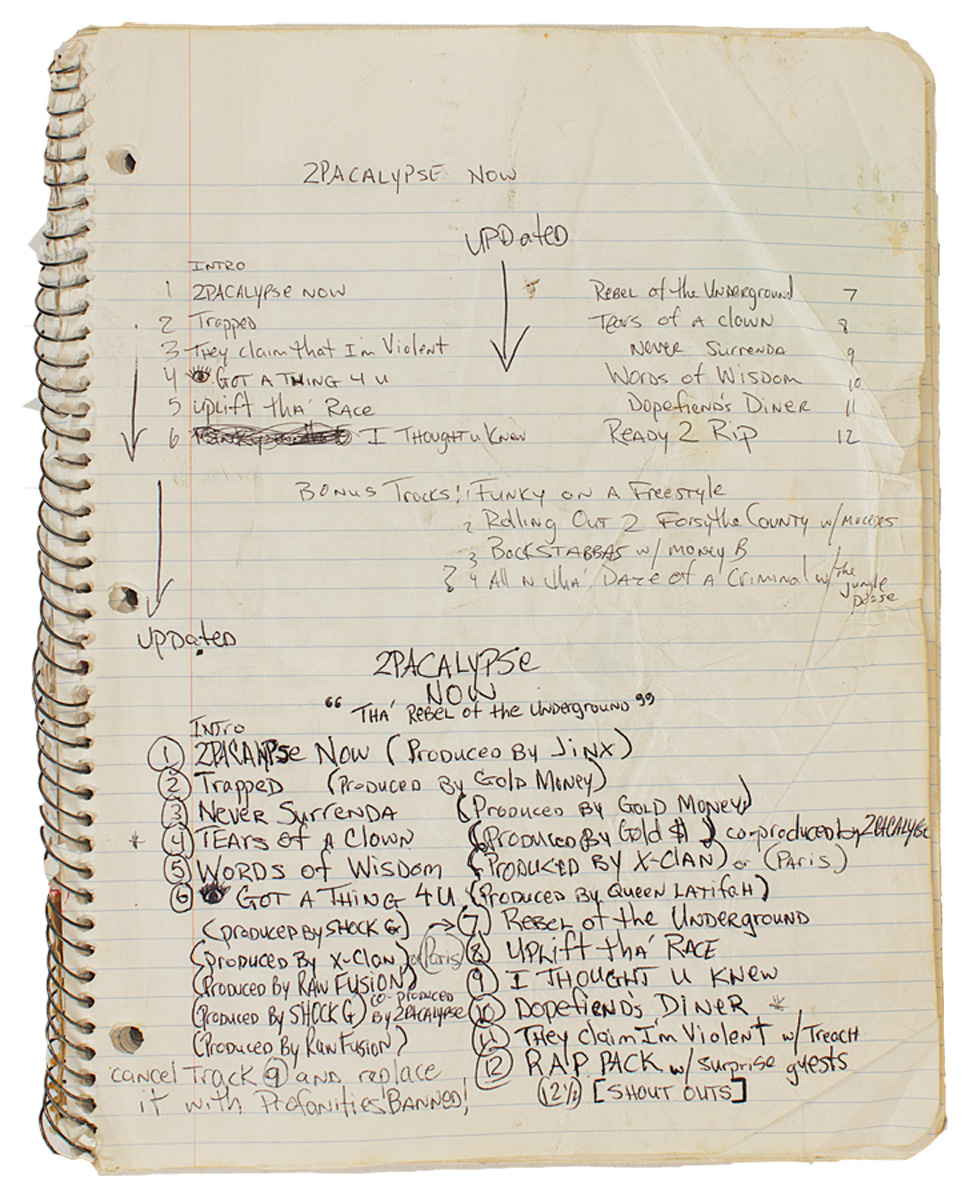 2PACALYPSE NOW
UPDated
INTRO
1 2PACALYPSE NOW
2 Trapped
3 They claim that I'm Violent
4 GOT A THING 4 U
5 Uplift tha' Race
6 I Thought u Knew
Rebel of the Underground 7
Tears of a clown 8
Never Surrenda 9
Words of Wisdom 10
Dopefiend's Diner 11
Ready 2 Rip 12
Bonus Tracks: 1 Funky on a Freestyle
2 Rolling Out 2 Forsythe County w/
3 BackSTABBAS w/ money B
4 All N tha' Daze of a Criminal w/ the
jungle
posse
UPDated
2PACALYPSE
NOW
"THA' Rebel of the Underground"
Intro
1 2PACALYPse Now (Produced By Jinx)
2 Trapped (Produced By Gold Money)
3 Never Surrenda (Produced by Gold Money)
* 4 TEARs of A Clown (Produced By Gold $) co-produced by 2PACALYPSE
5 Words of Wisdom (Produced By X-Clan) or (Paris)
6 GOT A THING 4 U (Produced By Queen Latifah)
(produced by SHOCK G) → 7 Rebel of the Underground
(produced By X-Clan) or (Paris) 8 UPLift tha' Race
(Produced By Raw Fusion) 9 I THOUGHT U Knew
(Produced By SHOCK G) co-produced by 2PACALYPSE 10 Dopefiend's Diner *
(Produced By Raw Fusion) 11 They claim I'm Violent w/ Treach
12 R.A.P. PACK w/ surprise guests
12½ [SHOUT OUTS]
cancel Track 9 and replace
it with Profanities Banned!